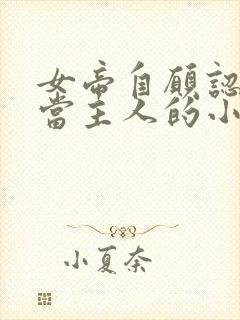 女帝自願認
當主人的小
小夏奈